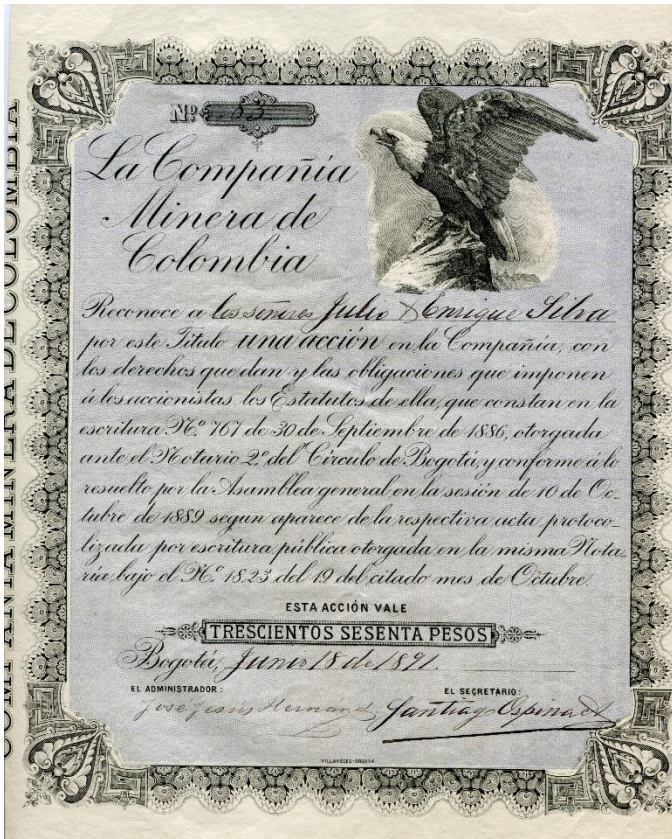 Nº 83
La Compañía
Minera de
Colombia
Reconoce a los señores Julio D Enrique Silva
por este Título una acción en la Compañía, con
los derechos que dan y las obligaciones que imponen
á los accionistas los Estatutos de ella, que constan en la
escritura Nº 767 de 30 de Septiembre de 1886, otorgada
ante el Notario 2º del Círculo de Bogotá, y conforme á lo
resuelto por la Asamblea general en la sesión de 10 de Oc-
tubre de 1889 segun aparece de la respectiva acta protoco-
lizada por escritura pública otorgada en la misma Nota-
ría, bajo el Nº 1823 del 19 del citado mes de Octubre.
ESTA ACCIÓN VALE
TRESCIENTOS SESENTA PESOS
Bogotá, Junio 18 de 1891.
EL ADMINISTRADOR: EL SECRETARIO:
José Jesús Santiago Ospina
VILLAVECES-BOGOTÁ
COMPAÑIA MINERA DE COLOMBIA